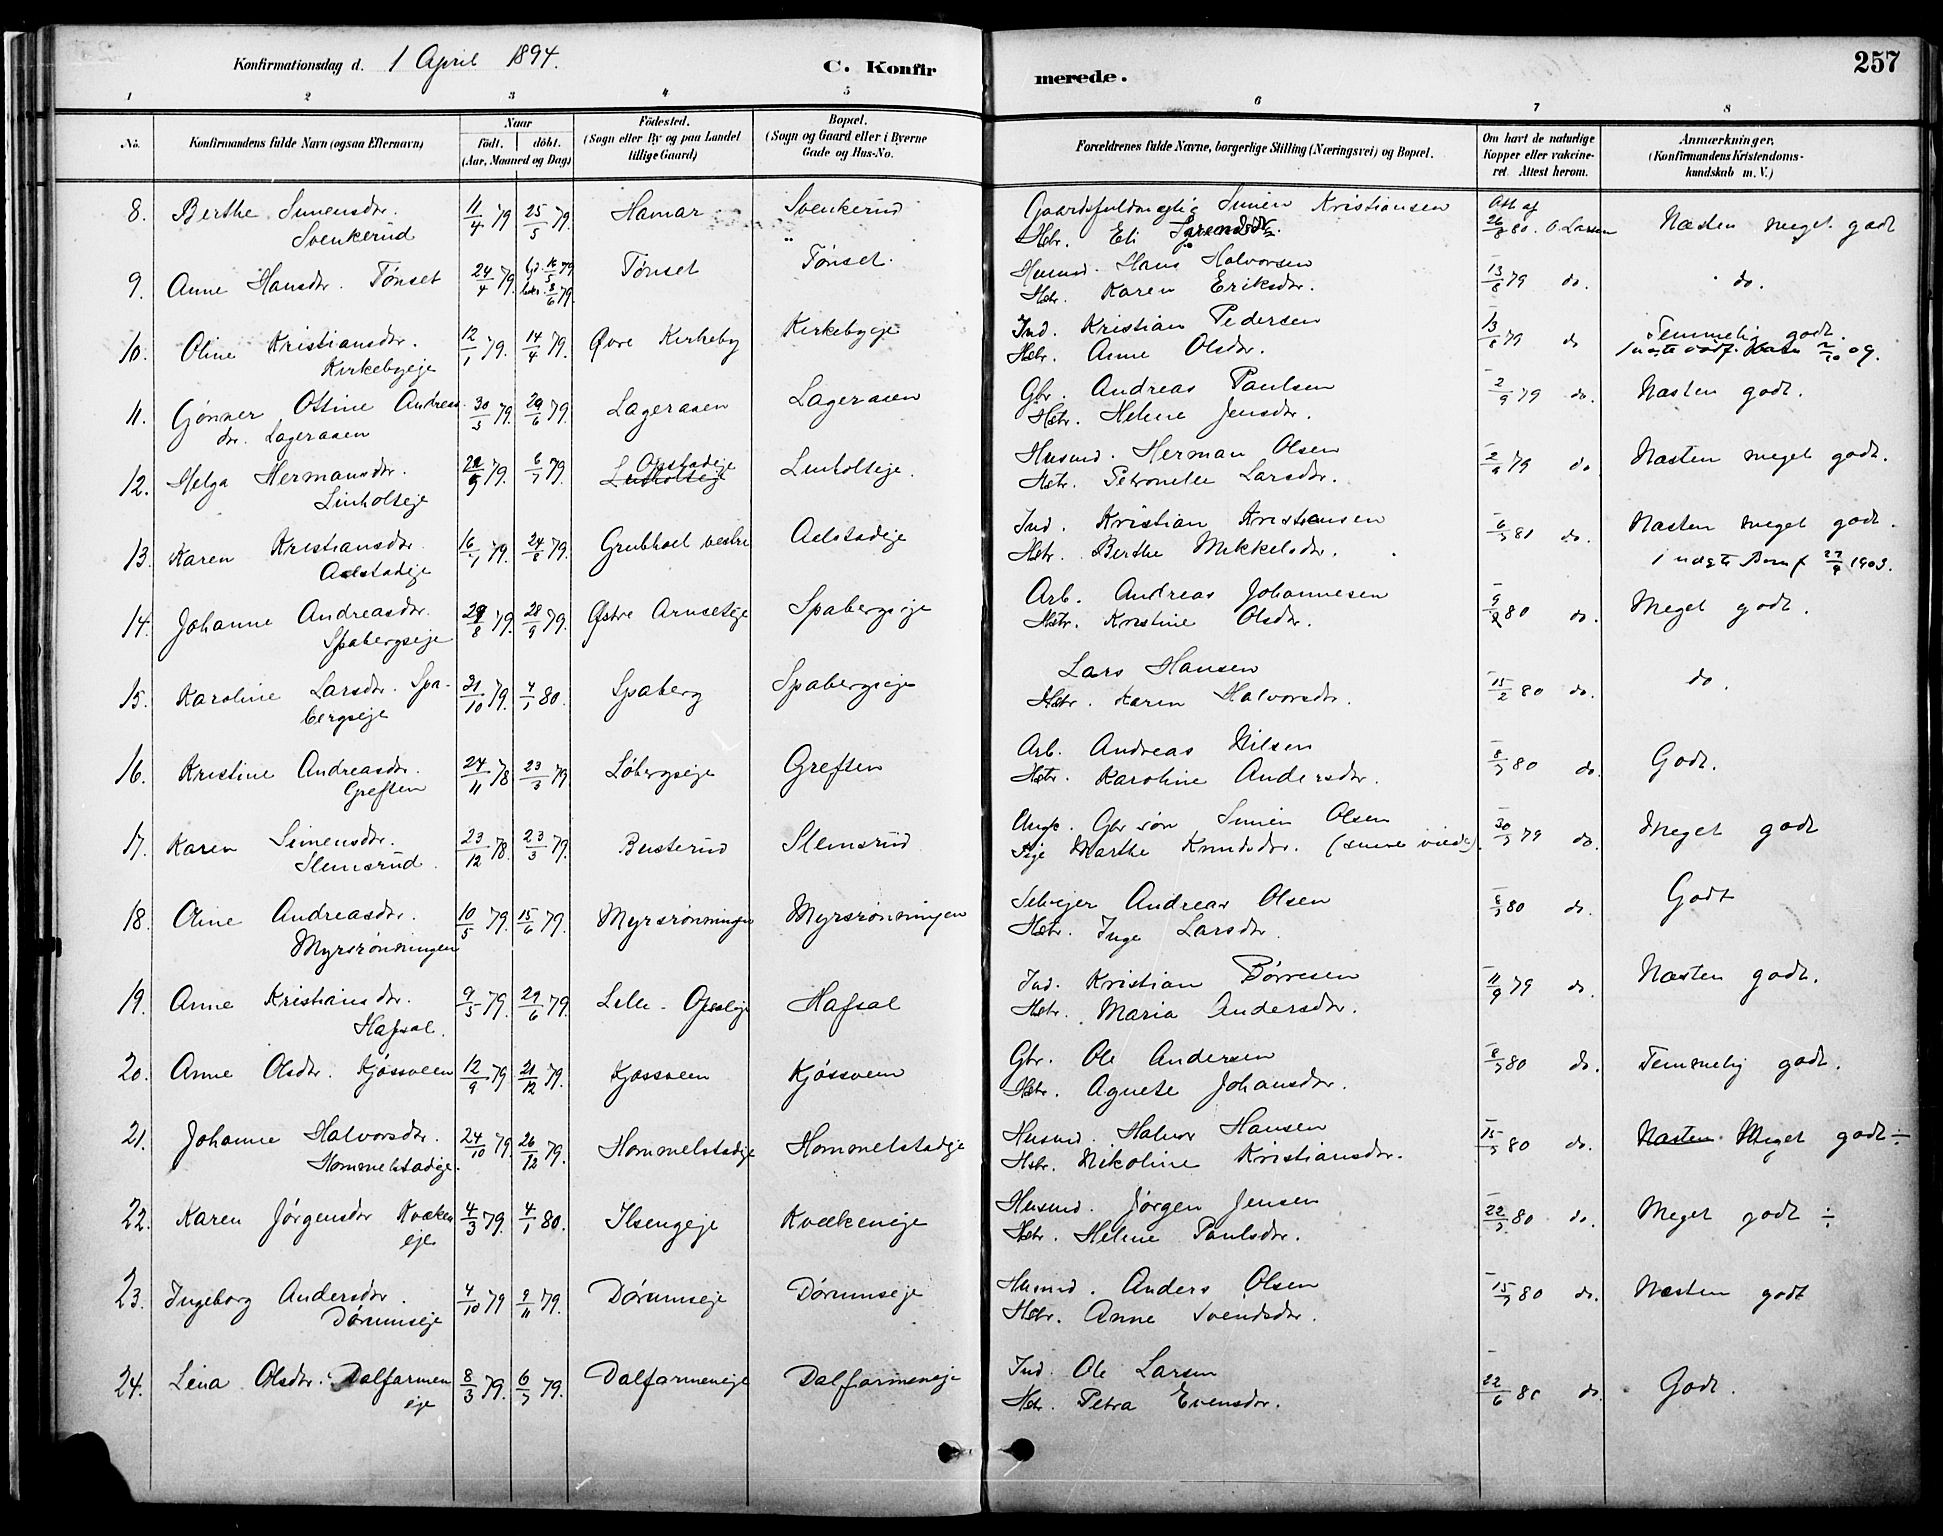 Konfirmationsdag d. 1 April 1894.
C. Konfirmerede.
257
1 2 3 4 5 6 7 8
No.
Konfirmandens fulde Navn (ogsaa Efternavn)
Naar
födt. döbt.
(Aar, Maaned og Dag)
Födested.
(Sogn eller By og paa Landet
tillige Gaard)
Bopæl.
(Sogn og Gaard eller i Byerne
Gade og Hus-No.
Forældrenes fulde Navne, borgerlige Stilling (Næringsvei) og Bopæl.
Om havt de naturlige
Kopper eller vakcine-
ret. Attest herom.
Anmærkninger.
(Konfirmandens Kristendoms-
kundskab m. V.)
8. Berthe Simensdr. 11/4 79 25/5 79. Hamar Svenkerud Gaardsfuldmægtig Simen Kristiansen Att af
Svenkerud Hstr. Eli 26/8 80. O. Larsen Næsten meget godt
9. Anne Hansdr. Tønset 24/4 79 Tønset Tønset. Husmd. Hans Halvorsen
Hstr. Karen Eriksdr. 13/8 79 do. do.
10. Oline Kristiansdr. 12/1 79. 14/4 79. Øvre Kirkeby Kirkebyeje Ind. Kristian Pedersen
Kirkebyeje Hstr. Anne Olsdr. 13/8 79 do Temmelig godt.
11. Gjønner Ottine Andreas- 30/3 79. 29/6 79. Lageraaen Lageraaen Gbr. Andreas Paulsen
dr. Lageraaen Hstr. Helene Jensdr. 2/9 79 do. Næsten godt.
12. Helga Hermansdr. 6/7 79. Opstadeje Linholteje. Husmd. Herman Olsen
Linholteje Linholteje Hstr. Petronelle Larsdr. 2/9 79 do Næsten meget godt.
13. Karen Kristiansdr. 16/7 79. 24/8 79. Grubhoel vestre Aelstadeje Ind. Kristian Kristiansen
Aelstadeje Hstr. Berthe Mikkelsdr. do. Næsten meget godt.
14. Johanne Andreasdr. 28/9 79. Østre Arnseteje Spabergseje Arb. Andreas Johannesen
Spabergseje Hstr. Kristine Olsdr. 80 do. Meget godt.
15. Karoline Larsdr. Spa- 21/10 79. 4/1 80. Spaberg Spabergseje Lars Hansen
bergseje Hstr. Karen Halvorsdr. 15/2 80 do. do.
16. Kristine Andreasdr. 24/11 78 23/3 79 Løbergseje Greften Arb. Andreas Nilsen
Greften Hstr. Karoline Andersdr. 8/3 80 do. Godt.
17. Karen Simensdr. 23/12 78. 23/3 79. Busterud Slemsrud Ungk. Gbr søn Simen Olsen
Slemsrud. Pige Marthe Knudsdr. 79 do. Meget godt
18. Oline Andreasdr. 10/5 79. 15/6 79. Myrsrønningen Myrsrønningen Selvejer Andreas Olsen
Myrsrønningen Hstr. Inge Larsdr. 8/3 80 do. Godt
19. Anne Kristiansdr. 9/5 79. 29/6 79. Lille-Opsaleje Hafsal Ind. Kristian Børresen
Hafsal. Hstr. Maria Andersdr. 11/9 79 do. Næsten godt.
20. Anne Olsdr. Kjøssveen 12/9 79 21/12 79. Kjøssveen Kjøssveen Gbr. Ole Andersen
Hstr. Agnete Johansdr. 8/3 80 do. Temmelig godt.
21. Johanne Halvorsdr. 24/10 79. 26/12 79. Hommelstadeje Hommelstadeje Husmd. Halvor Hansen
Hommelstadeje. Hstr. Nikoline Kristiansdr. 15/3 80 do. Næsten Meget godt ÷
22. Karen Jørgensdr Kvæken- 4/3 79. 4/1 80. Ilsengeje Kvækeneje Husmd. Jørgen Jensen
eje Hstr. Helene Paulsdr. 22/3 80 do. Meget godt ÷
23. Ingeborg Andersdr. 4/10 79 9/11 79. Dørumseje Dørumseje Husmd. Anders Olsen
Dørumseje Hstr. Anne Svendsdr. 15/3 80 do. Næsten godt
24. Lina Olsdr. Dalfarmen 8/3 79. 6/7 79. Dalfarmeneje Dalfarmeneje Ind. Ole Larsen
eje Hstr. Petra Evensdr. 22/6 do. Godt.